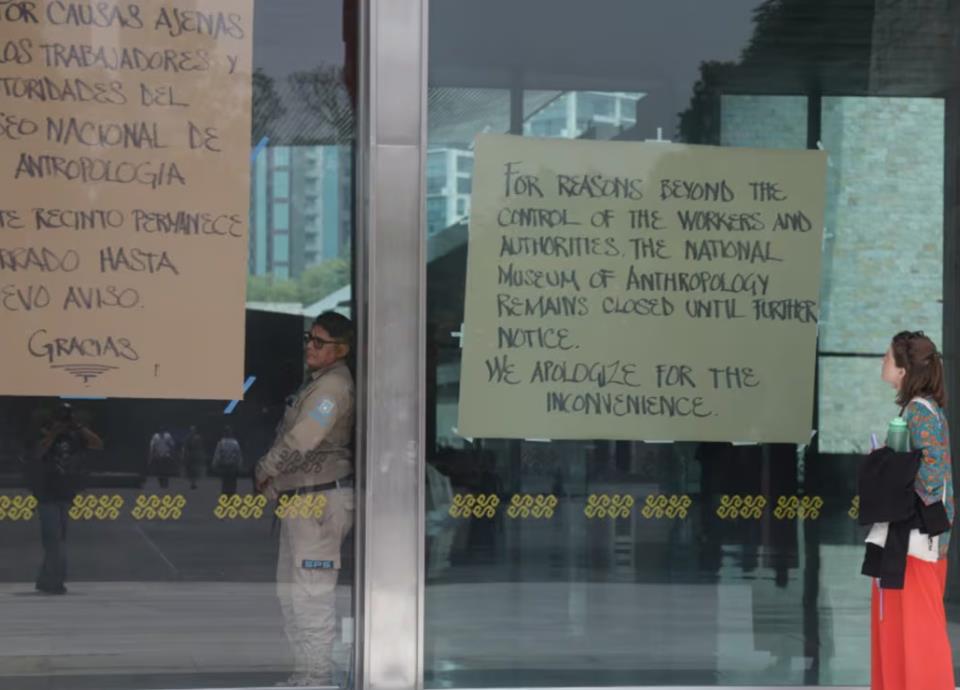 CAUSAS AJENAS
LOS TRABAJADORES Y
DEL
NACIONAL DE
ANTROPOLOGIA
RECINTO PERMANECE
HASTA
AVISO.
GRACIAS
FOR REASONS BEYOND THE
CONTROL OF THE WORKERS AND
AUTHORITIES, THE NATIONAL
MUSEUM OF ANTHROPOLOGY
REMAINS CLOSED UNTIL FURTHER
NOTICE.
WE APOLOGIZE FOR THE
INCONVENIENCE.
SPS